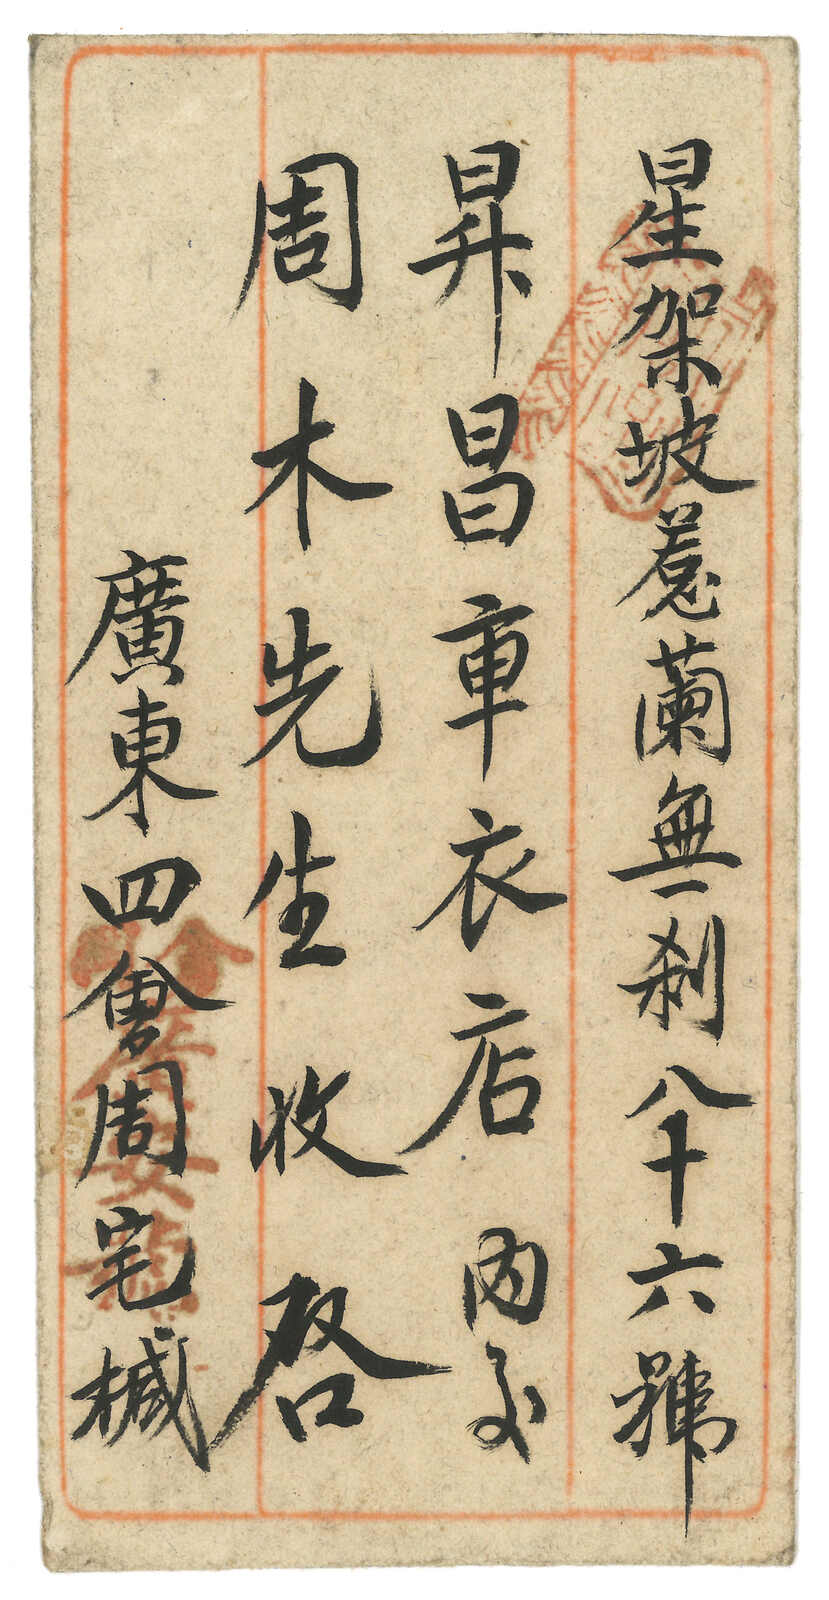 星架坡惹蘭無刹八十六號
昇昌車衣店內交
周木先生收啓
廣東四會周宅椷